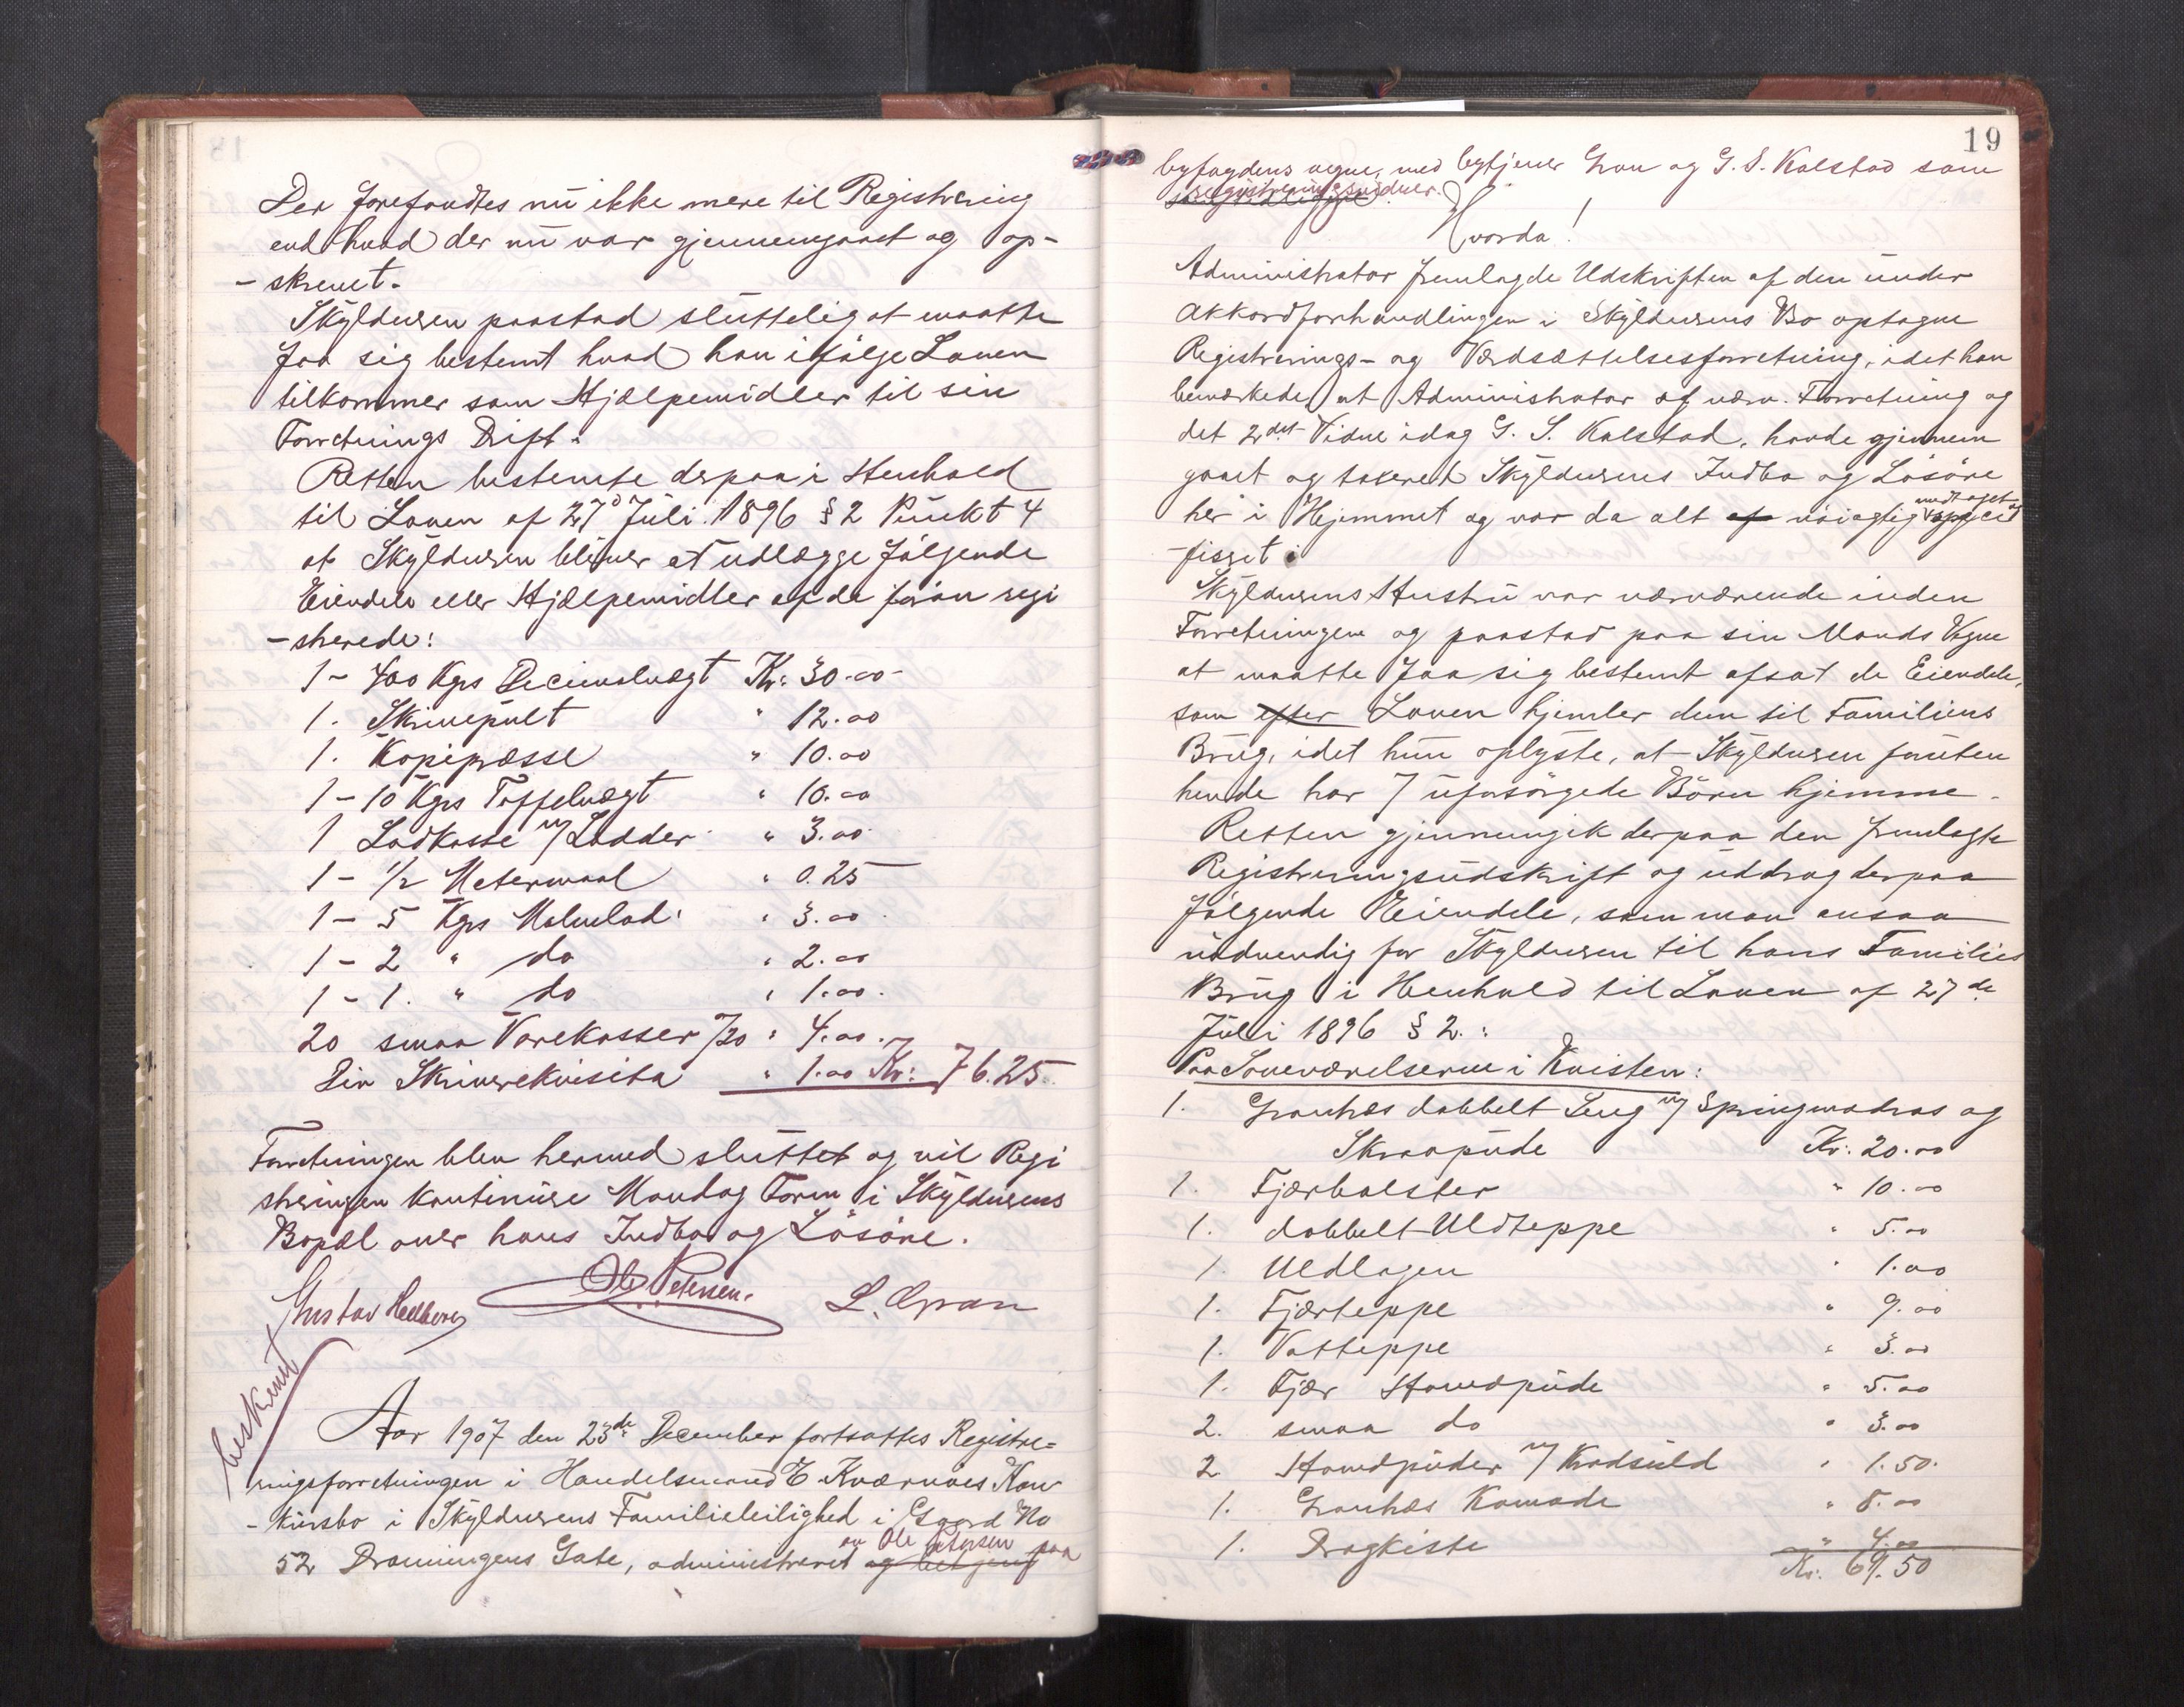 Der forefandtes nu ikke mere til Registrering
end hvad der nu var gjennemgaaet og op-
-skrevet.
Skyldneren paastod sluttelig at maatte
faa sig bestemt hvad han ifølge Loven
tilkommer som Hjælpemidler til sin
Forretnings Drift.
Retten bestemte derpaa i Henhold
til Loven af 27de Juli 1896 § 2 Punkt 4
at Skyldneren bliver at udlægge følgende
Eiendele eller Hjælpemidler af de foran regi
-strerede:
1 - 400 Kgrs Decimalvægt Kr: 30.00
1. Skrivepult " 12.00
1. Kopipræsse " 10.00
1 - 10 Kgrs Taffelvægt " 10.00
1 Lodkasse m/ Lodder " 3.00
1 - 1/2 Metermaal " 0.25
1 - 5 Kgrs Malmlod " 3.00
1 - 2 " do " 2.00
1 - 1. " do " 1.00.
20 smaa Varekasser /20 " 4.00.
Div Skriverekvisita " 1.00 Kr: 76.25
Forretningen blev hermed sluttet og vil Regi
streringen kontinuere Mandag Form i Skyldnerens
Bopæl over hans Indbo og Løsøre.
Gustav Hedberg Ole Petersen. L. Gran
beskrevet
Aar 1907 den 23de December fortsattes Registre=
ringsforretningen i Handelsmand E Kværnnæs Kon
-kursbo i Skyldnerens Familieleilighed i Gaard No
av Ole Petersen paa
52 Dronningens Gate, administreret og betjent
19
byfogdens vegne, med bytjener Gran og G. S. Kalstad som
registreringsvidner.
Hvorda!
Administrator fremlagde Udskriften af den under
Akkordforhandlingen i Skyldnerens Bo optagne
Registrerings- og Værdsættelsesforretning, idet han
bemærkede at Administrator af nævn. Forretning og
det 2det Vidne idag G. S. Kalstad, havde gjennem
gaaet og taxeret Skyldnerens Indbo og Løsøre
medtaget og
her i Hjemmet og var da alt af nøiagtig speci
-fisset.
Skyldnerens Hustru var nærværende under
Forretningen og paastod paa sin Mands Vegne
at maatte faa sig bestemt afsat de Eiendele,
som efter Loven hjemler dem til Familiens
Brug, idet hun oplyste, at Skyldneren foruten
hende har 7 uforsørgede Børn hjemme.
Retten gjennemgik derpaa den fremlagte
Registreringsudskrift og uddrog derpaa
følgende Eiendele, som man ansaa
nødvendig for Skyldneren til hans Families
Brug i Henhold til Loven af 27de
Juli 1896 § 2.:
Paa Soveværelserne i Kvisten:
1. Granhæs dobbelt Seng m/ Springmadras og
Skraapude Kr: 20.00
1. Fjærbolster " 10.00
1. dobbelt Uldteppe " 5.00
1. Uldlagen " 1.00
1. Fjærteppe " 9.00
1. Vatteppe " 3.00
1. Fjær Hovedpude " 5.00
2. smaa do " 3.00
2 Hovedpuder m/ Krøduld " 1.50.
1. Granhæs Komode " 8.00
1. Dragkiste " 4.00
Kr. 69.50